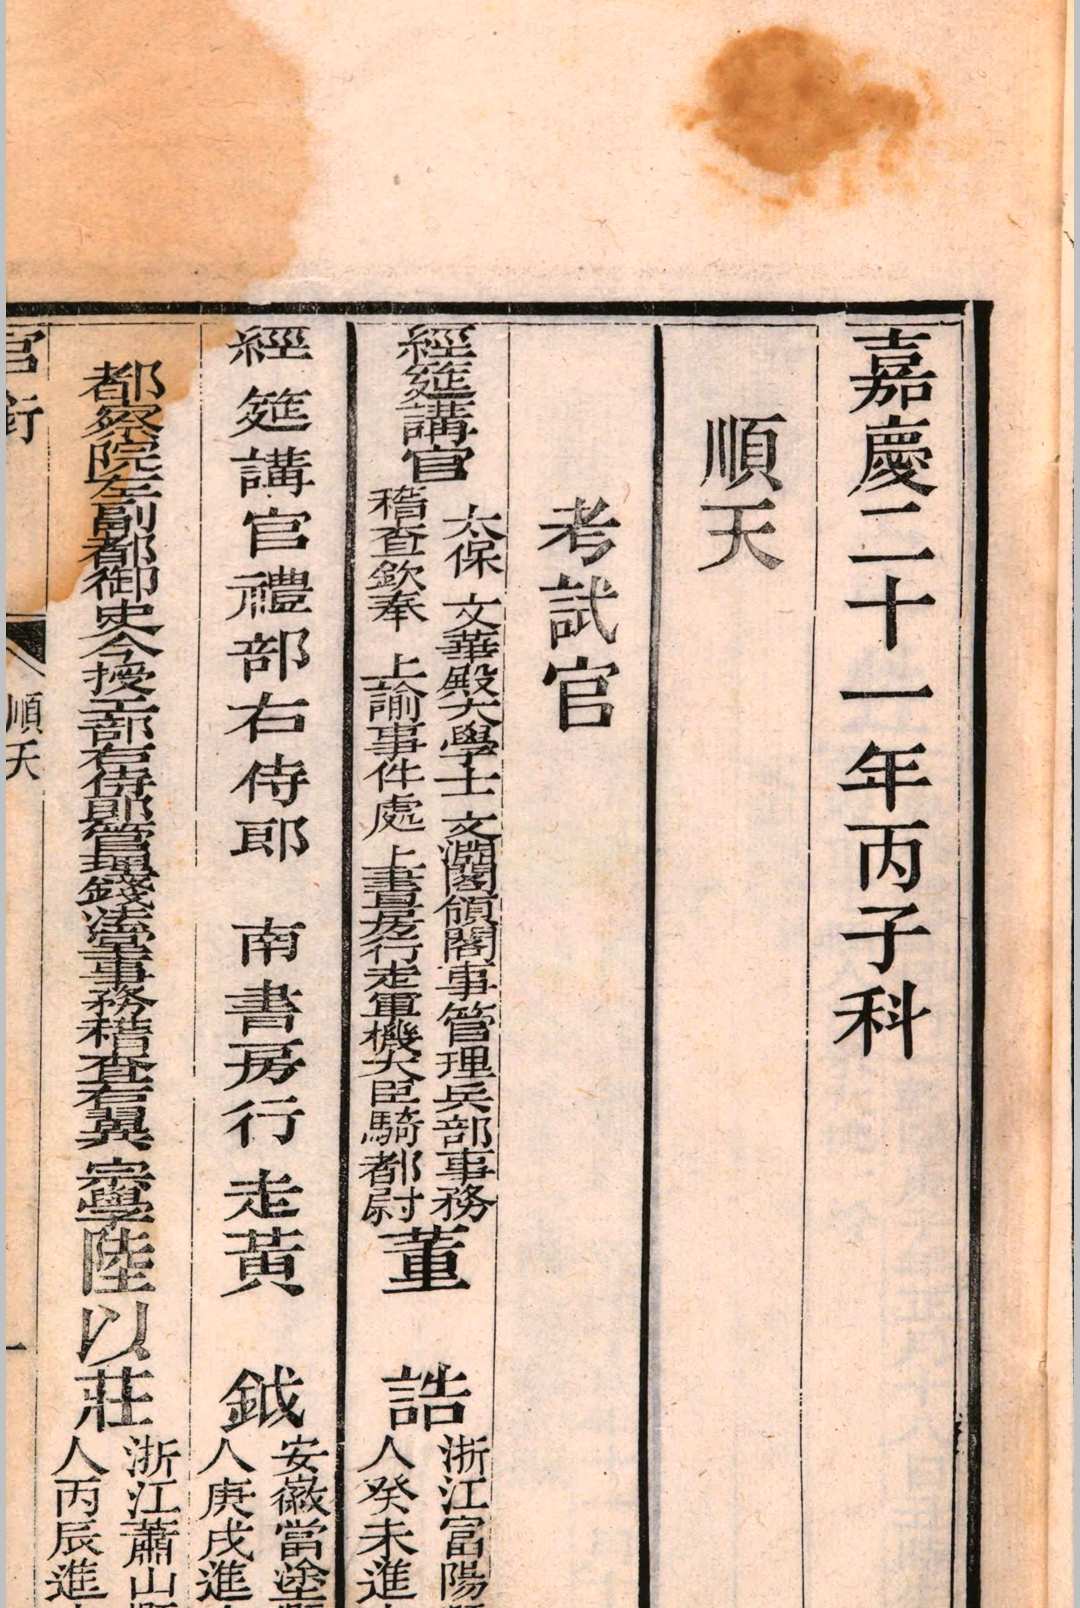 嘉慶二十一年丙子科
順天
考試官
經筵講官
太保 文華殿大學士 文淵閣領閣事管理兵部事務
稽查欽奉 上諭事件處 上書房行走軍機大臣騎都尉
董 誥
浙江富陽縣
人癸未進
經筵講官禮部右侍郎 南書房行走黃 鉞
安徽當塗縣
人庚戌進
都察院左副都御史今授工部右侍郎管理錢法堂事務稽查右翼宗學陸以莊
浙江蕭山縣
人丙辰進
官銜
順天
一